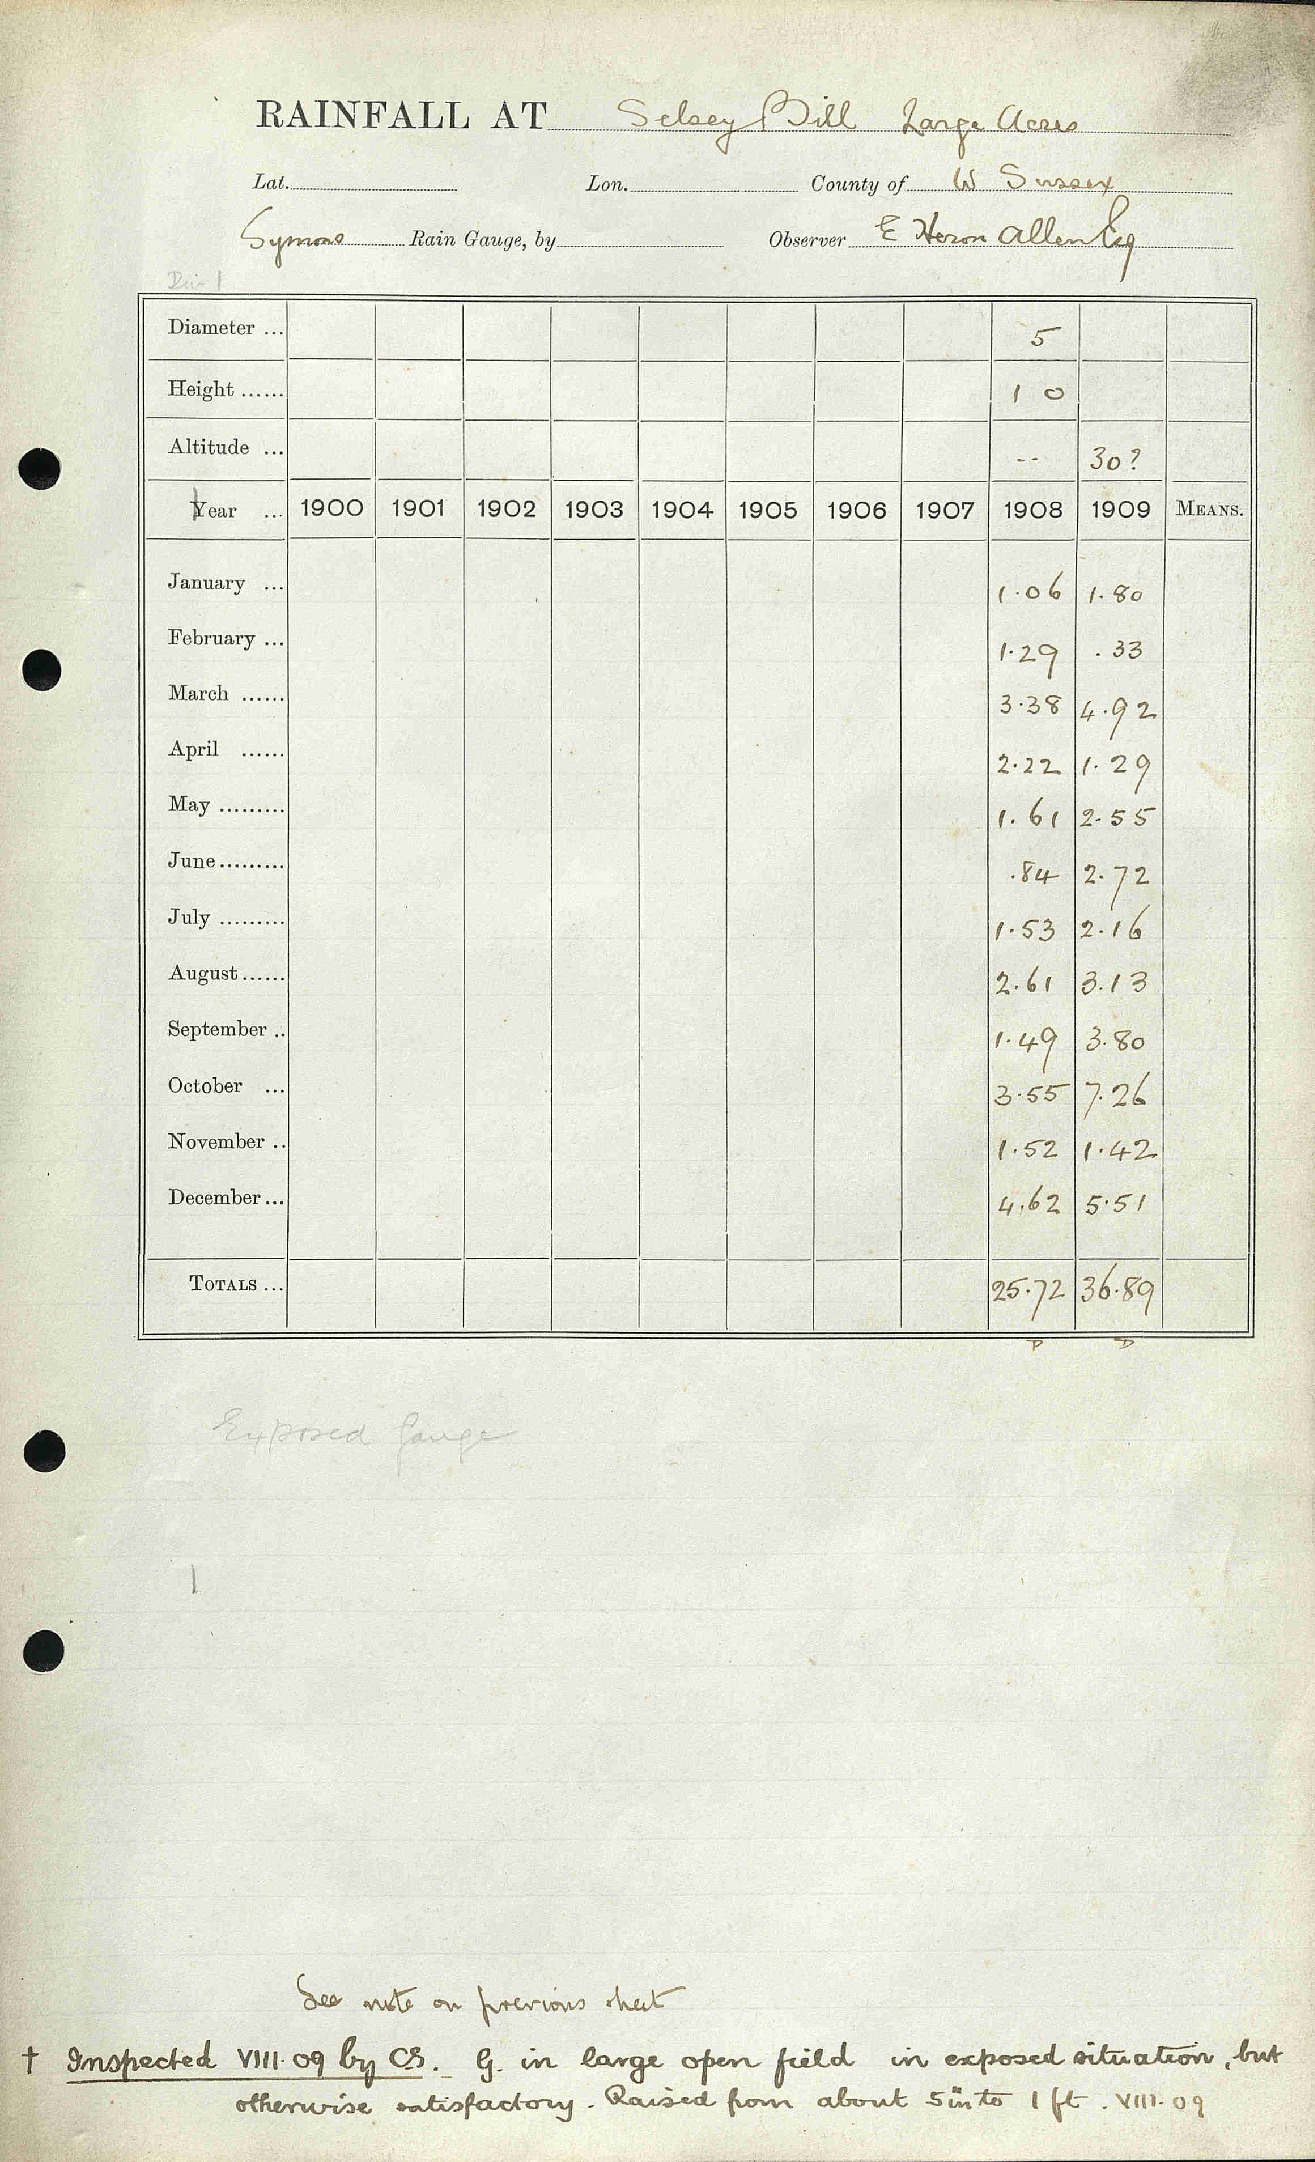 RAINFALL AT Selsey Bill Large Acres
Lat. Lon. County of W Sussex
Symons Rain Gauge, by Observer E Heron Allen Esq
Div 1
Diameter ... 5
Height ...... 1 0
Altitude ... -- 30?
Year ... 1900 1901 1902 1903 1904 1905 1906 1907 1908 1909 MEANS.
January ... 1.06 1.80
February ... 1.29 .33
March ...... 3.38 4.92
April ...... 2.22 1.29
May ......... 1.61 2.55
June ......... .84 2.72
July ......... 1.53 2.16
August ...... 2.61 3.13
September .. 1.49 3.80
October ... 3.55 7.26
November .. 1.52 1.42
December ... 4.62 5.51
TOTALS ... 25.72 36.89
Exposed Gauge
See note on previous sheet
† Inspected VIII.09 by CS. G. in large open field in exposed situation, but
otherwise satisfactory. Raised from about 5 in to 1 ft. VIII.09